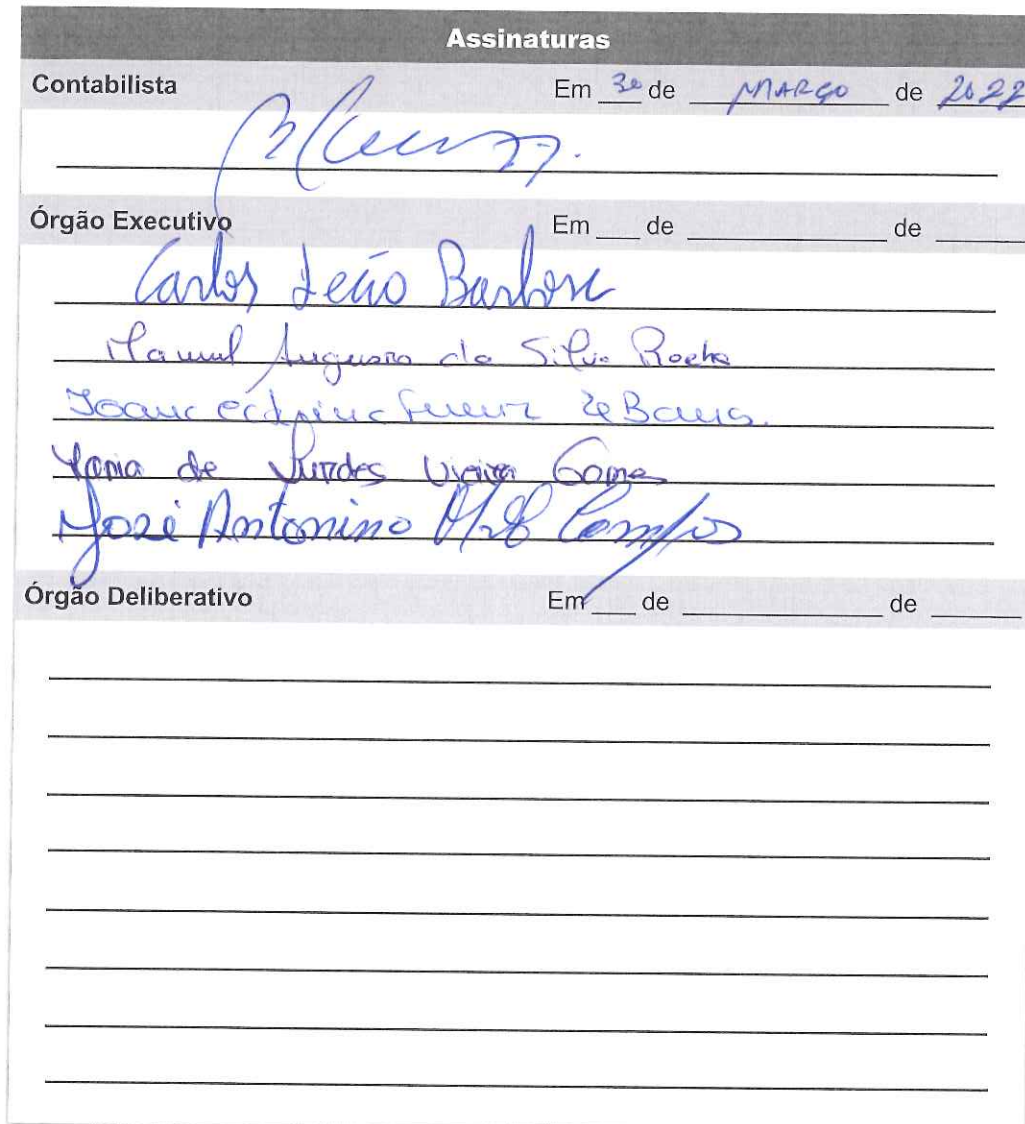 Assinaturas
Contabilista Em 30 de MARÇO de 2022
Órgão Executivo Em ___ de ___ de ___
Carlos Barbosa
Manuel Augusto da Silva Rocha
Joana
Maria de Lurdes Vieira Gomes
José Antonino Campos
Órgão Deliberativo Em ___ de ___ de ___